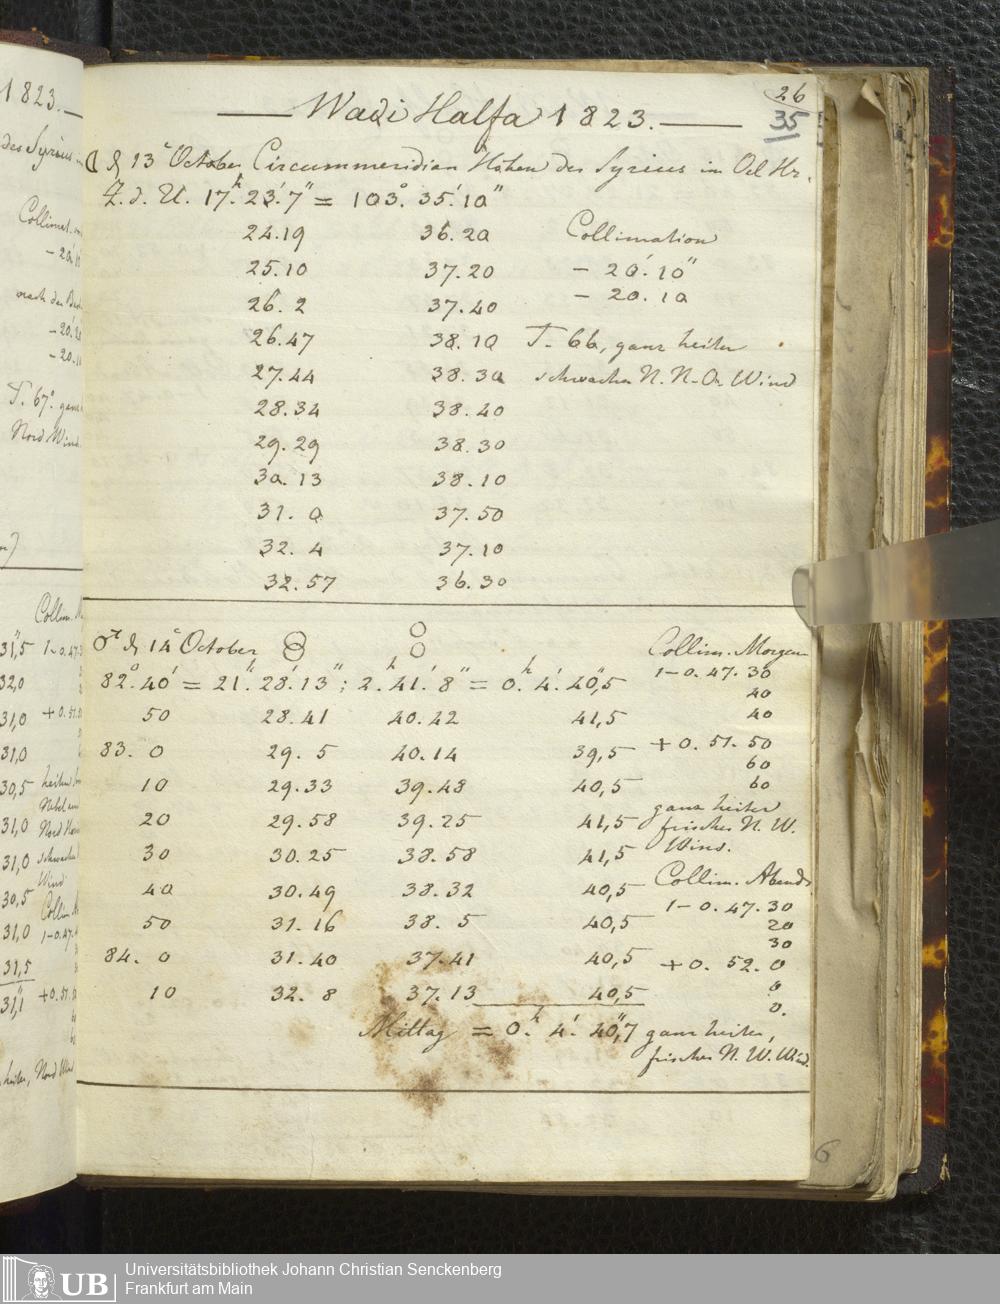 26
35
Wadi Halfa 1823.
☾ d. 13ᵗ October Circummeridian Höhen des Syrius im Oel Hr.
Z. d. U. 17.ʰ 23.′ 7″ = 103.° 35.′ 10″
24.19 36.20 Collimation
25.10 37.20 − 20′. 10″
26. 2 37.40 − 20. 10
26.47 38.10 T. 66, ganz heiter
27.44 38.30 schwacher N. N. O. Wind
28.34 38.40
29.29 38.30
30.13 38.10
31. 0 37.50
32. 4 37.10
32.57 36.30
♂ d. 14ᵗ October Collim. Morgens
82.° 40′ = 21.ʰ 28.′ 13″; 2.ʰ 41.′ 8″ = 0.ʰ 4.′ 40,″5 1−0.47.30
40
50 28.41 40.42 41,5 40
83. 0 29. 5 40.14 39,5 +0.51.50
60
10 29.33 39.48 40,5 60
ganz heiter
20 29.58 39.25 41,5 frischer N. W.
Wind.
30 30.25 38.58 41,5
Collim. Abends
40 30.49 38.32 40,5
1−0.47.30
50 31.16 38. 5 40,5 20
30
84. 0 31.40 37.41 40,5 +0. 52. 0
0
10 32. 8 37.13 40,5
0.
Mittag = 0.ʰ 4.′ 40,″7 ganz heiter,
frischer N. W. Wind.
6
1823.
des Syrius
Collimat.
T. 67.°
Nord Wind
Collim.
31,5 1−0.47.
32,0
31,0 +0.51.
31,0
30,5 heiter
Nebel
31,0 Nord
31,0 schwacher
Wind
30,5
Collim.
31,0 1−0.47.
31,5
31,1 +0.51.
heiter, Nord Wind
UB
Universitätsbibliothek Johann Christian Senckenberg
Frankfurt am Main